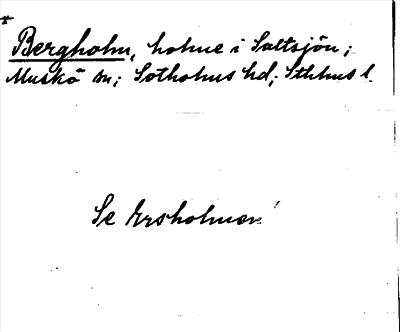 * Bergholm, holme i Saltsjön;
Muskö sn; Sotholms hd; Sthlms l.
Se Ersholmen